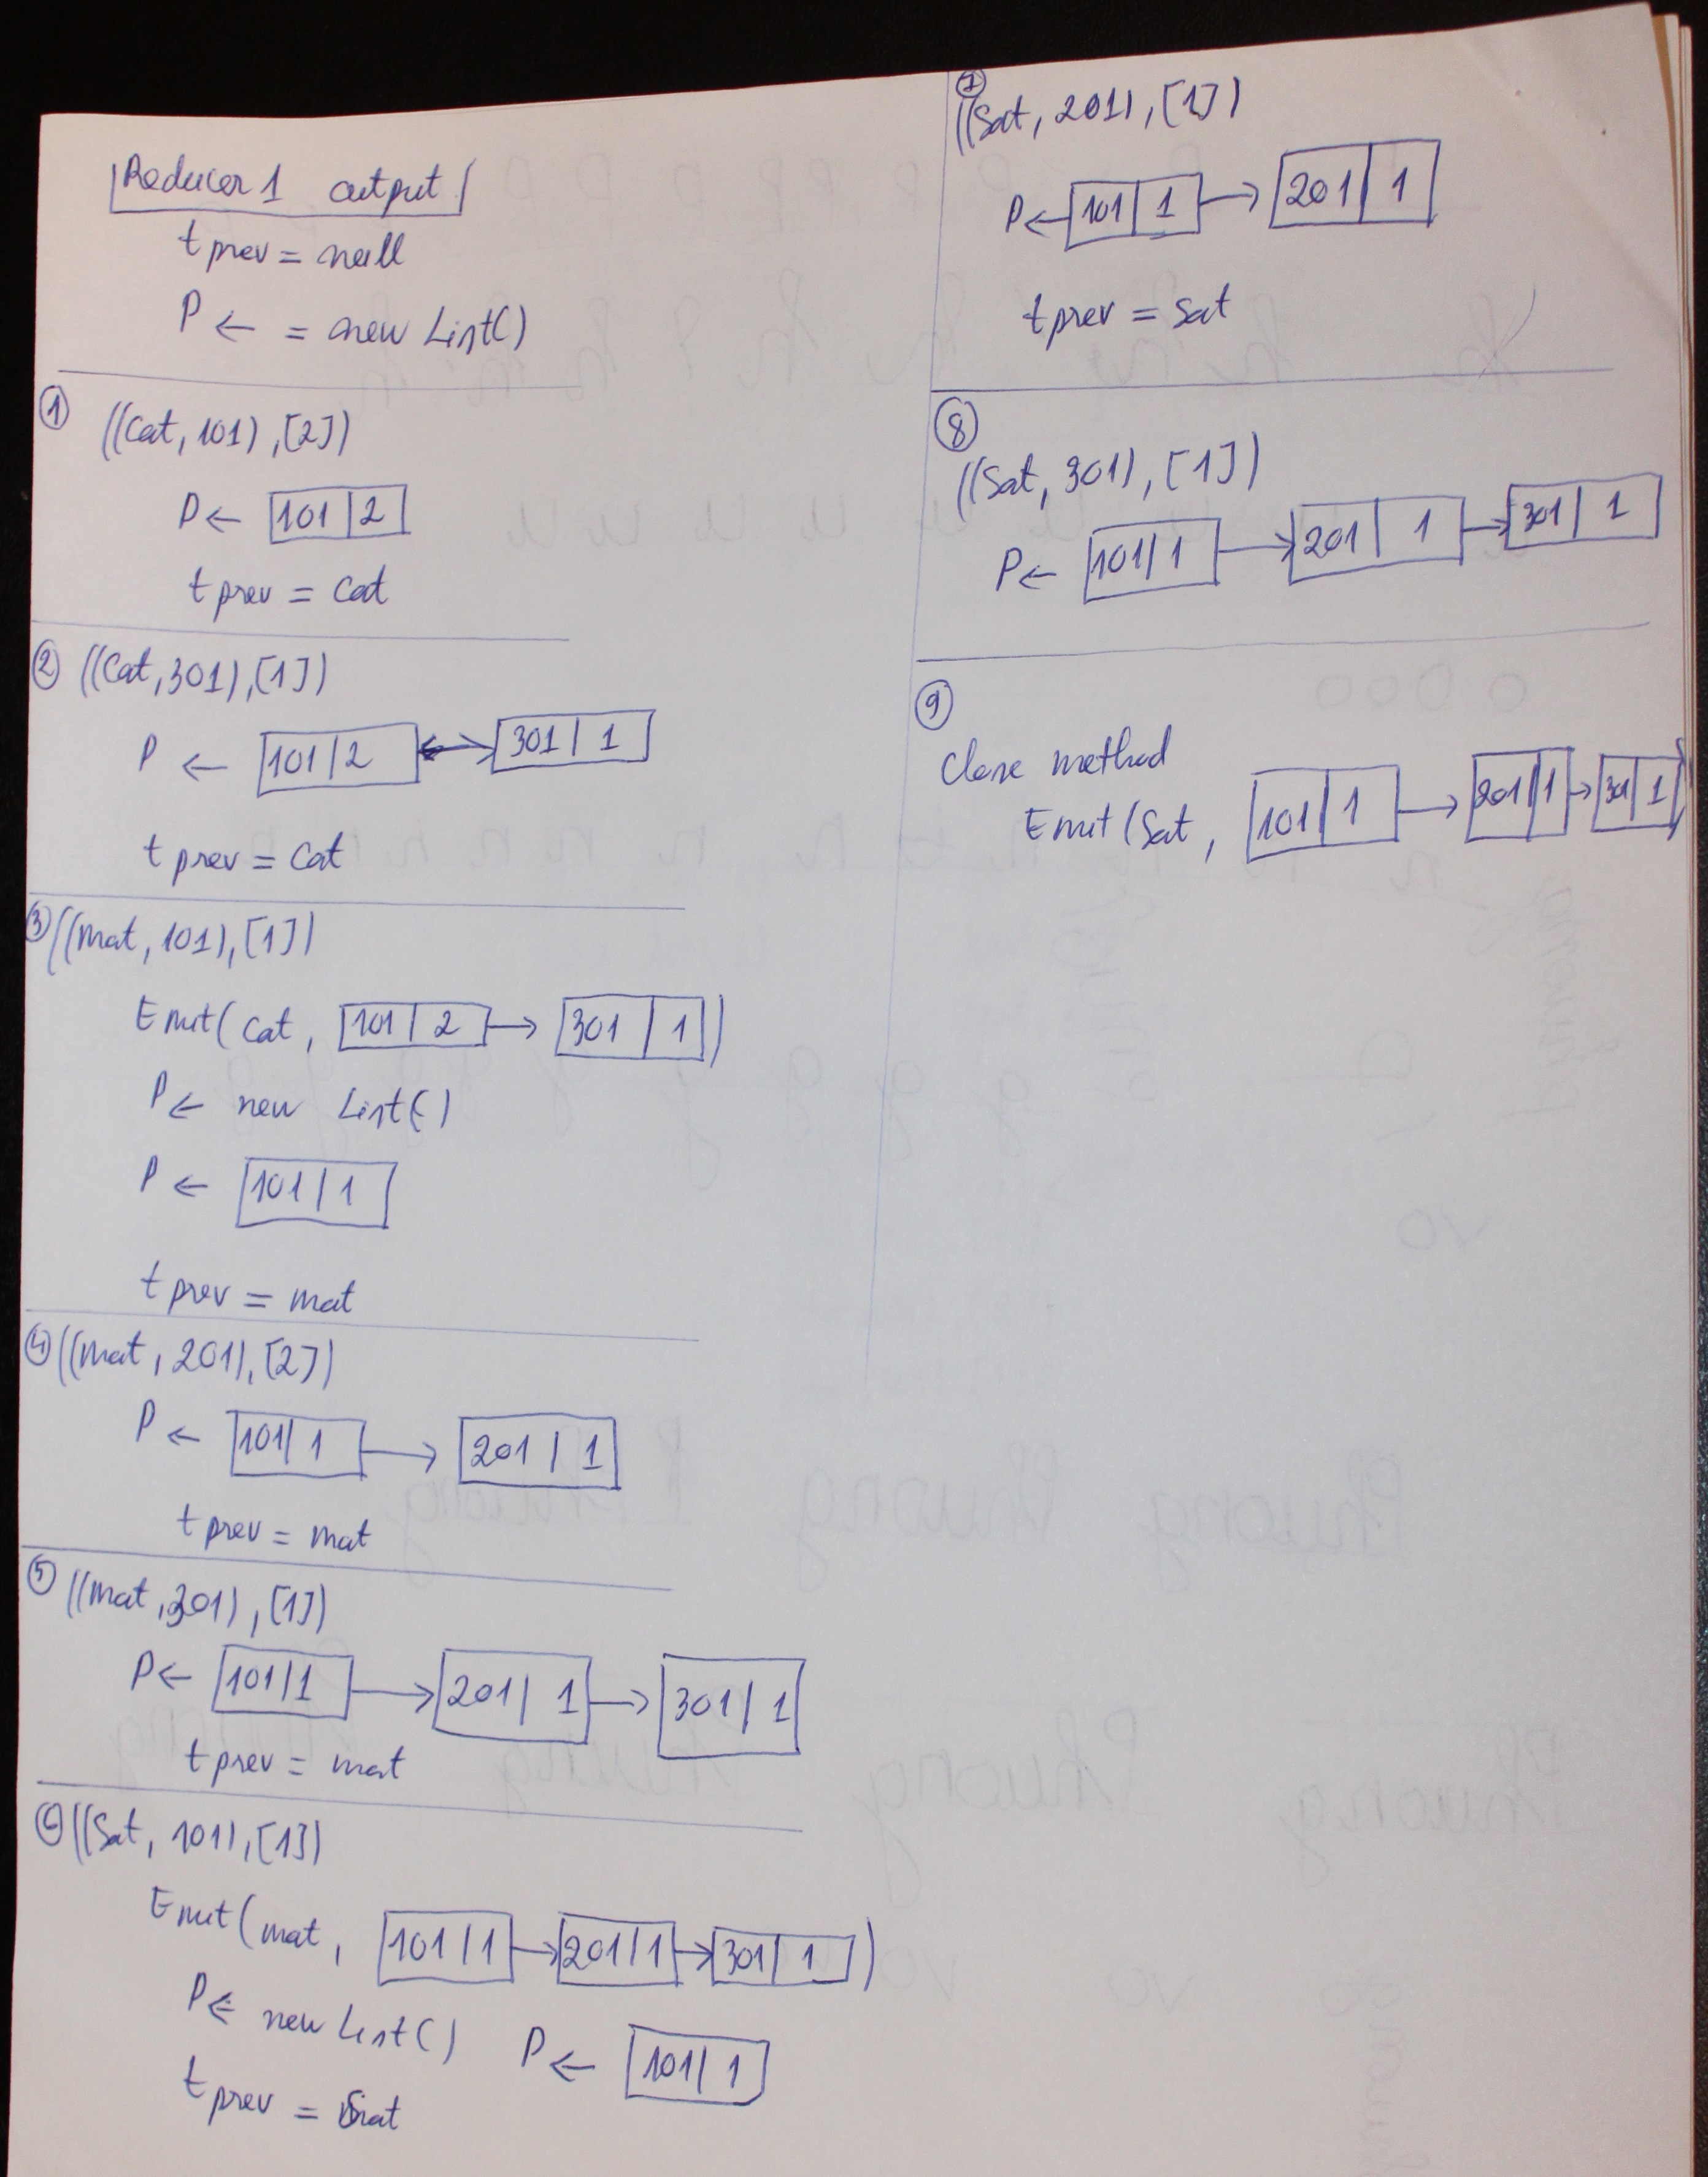 Reducer 1 output
t prev = null
P ← = new List()
① ((Cat, 101), [2])
P ← 101 | 2
t prev = cat
② ((Cat, 301), [1])
P ← 101 | 2 ↔ 301 | 1
t prev = cat
③ ((mat, 101), [1])
Emit( cat, 101 | 2 → 301 | 1 )
P ← new List()
P ← 101 | 1
t prev = mat
④ ((mat, 201), [2])
P ← 101 | 1 → 201 | 1
t prev = mat
⑤ ((mat, 301), [1])
P ← 101 | 1 → 201 | 1 → 301 | 1
t prev = mat
⑥ ((Sat, 101), [1])
Emit( mat, 101 | 1 → 201 | 1 → 301 | 1 )
P ← new List() P ← 101 | 1
t prev = Sat
⑦
((Sat, 201), [1])
P ← 101 | 1 → 201 | 1
t prev = sat
⑧
((Sat, 301), [1])
P ← 101 | 1 → 201 | 1 → 301 | 1
⑨
Close method
Emit (Sat, 101 | 1 → 201 | 1 → 301 | 1 )